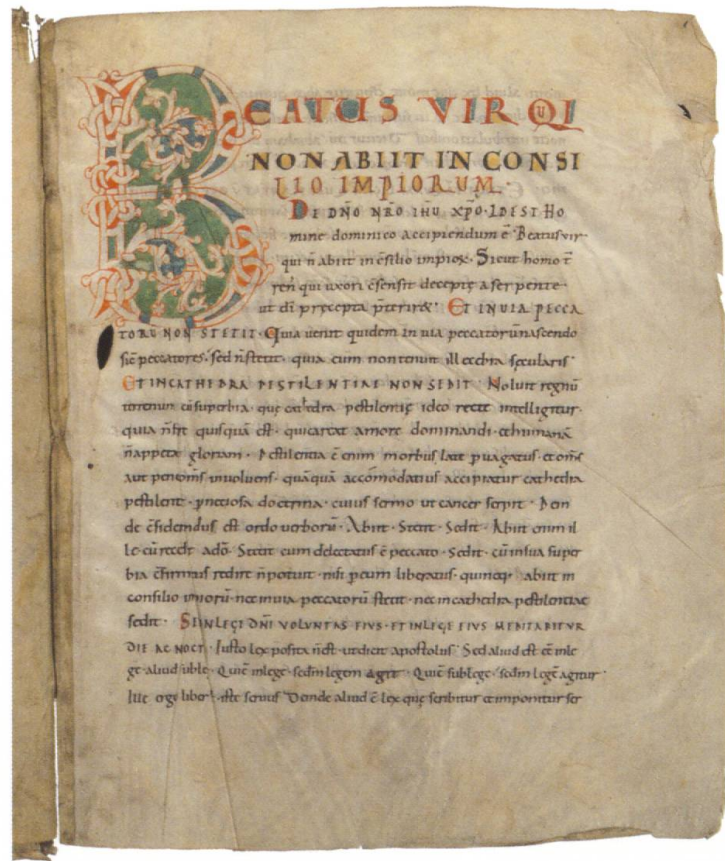 BEATUS VIR QUI
NON ABIIT IN CONSI
LIO IMPIORUM.
DE DÑO NRO IHU XPO. IDEST HO
mine dominico accipiendum ē. Beatus vir.
qui ñ abiit in c̄silio impioꝝ. Sicut homo t̄
ren qui uxori c̄sensit decepte a serpente.
ut di precepta p̄teriret. ET IN VIA PECCA
TORŪ NON STETIT. Quia venit quidem in via peccatorū nascendo
sic peccatores. sed ñ stetit. quia eum non tenuit illecebra secularis.
ET IN CATHEDRA PESTILENTIAE NON SEDIT. Noluit regnū
terrenum cū superbia. que cathedra pestilentie ideo recte intelligitur.
quia ñ fere quisquā est. qui careat amore dominandi. et humanā
ñ appetat gloriam. Pestilentia ē enim morbus late pervagatus. et om̄s
aut pene om̄s involvens. quāquā accōmodatius accipiatur cathedra
pestilent. pniciosa doctrina. cuius sermo ut cancer serpit. Dein
de c̄siderandus est ordo verborū. Abiit. Stetit. Sedit. Abiit enim il
le cū recessit a dō. Stetit cum delectatus ē peccato. Sedit. cū in sua super
bia c̄firmatus redire ñ potuit. nisi p eum liberatus. qui neq; abiit in
consilio impiorū. nec in via peccatorū stetit. nec in cathedra pestilentiae
sedit. S; IN LEGE DÑI VOLUNTAS EIUS. ET IN LEGE EIUS MEDITABITUR
DIE AC NOCT. Iusto lex posita ñ est. ut dicit apostolus. Sed aliud est eē in le
ge. aliud sub lege. Qui ē in lege. sedm legem agit. Qui ē sub lege. sedm legē agitur.
Ille ergo liber. iste servus. Deinde aliud ē lex que scribitur et imponitur ser